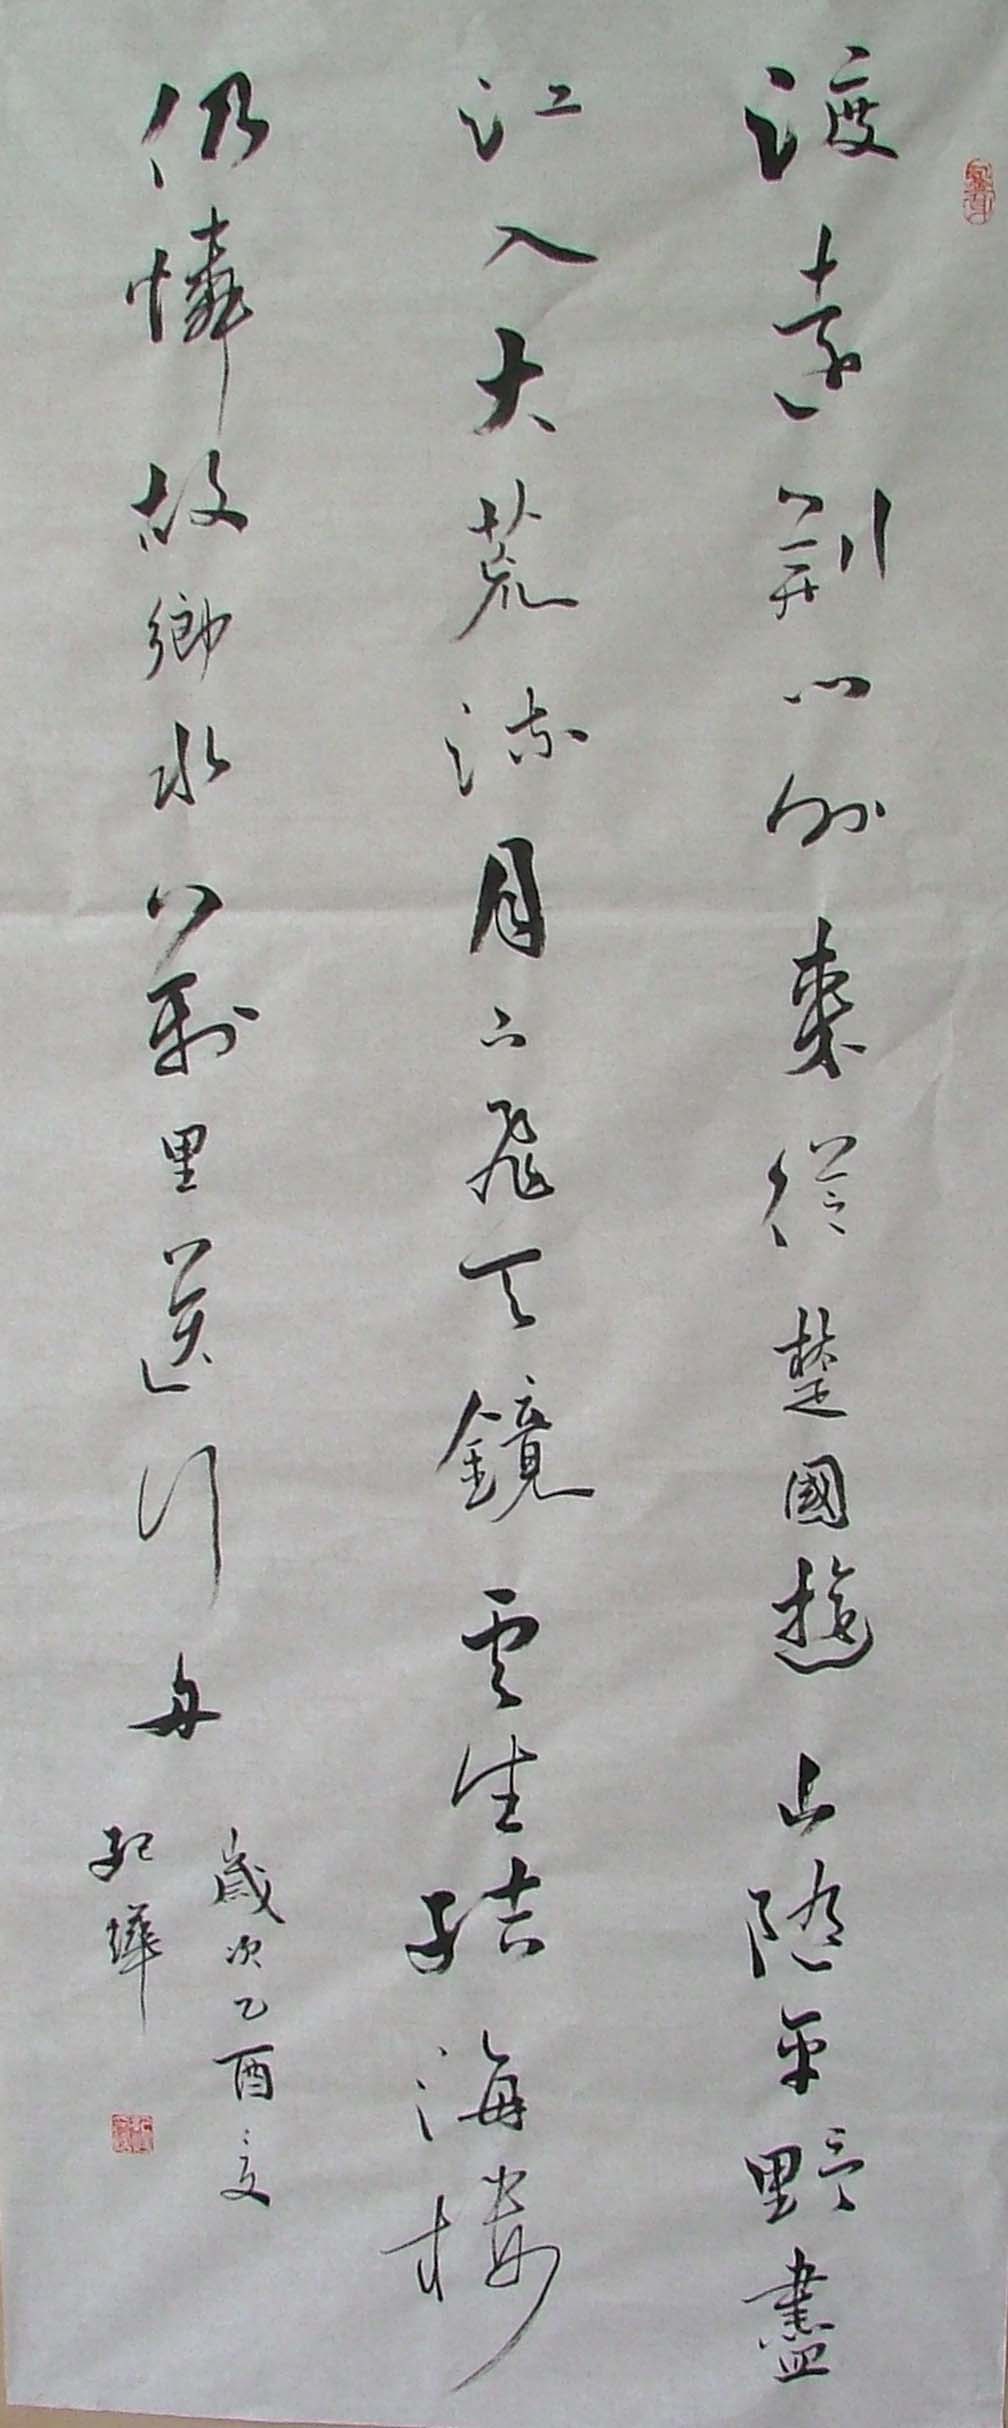 渡遠荊門外來從楚國遊山隨平野盡
江入大荒流月下飛天鏡雲生結海樓
仍憐故鄉水萬里送行舟
歲次乙酉夏